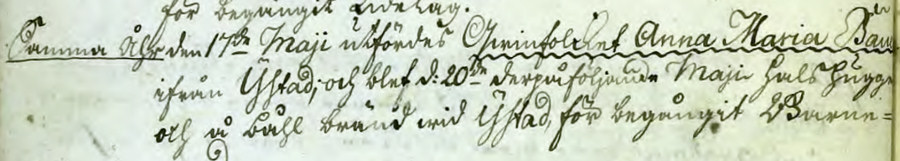 för begångit Tidelag.
Samma Åhr den 17de Maji utfördes Qvinfolcket Anna Maria
ifrån Ÿstad, och blef d: 20de derpåföljande Maji halshugge
och å båhl bränd wid Ÿstad, för begångit Barne=